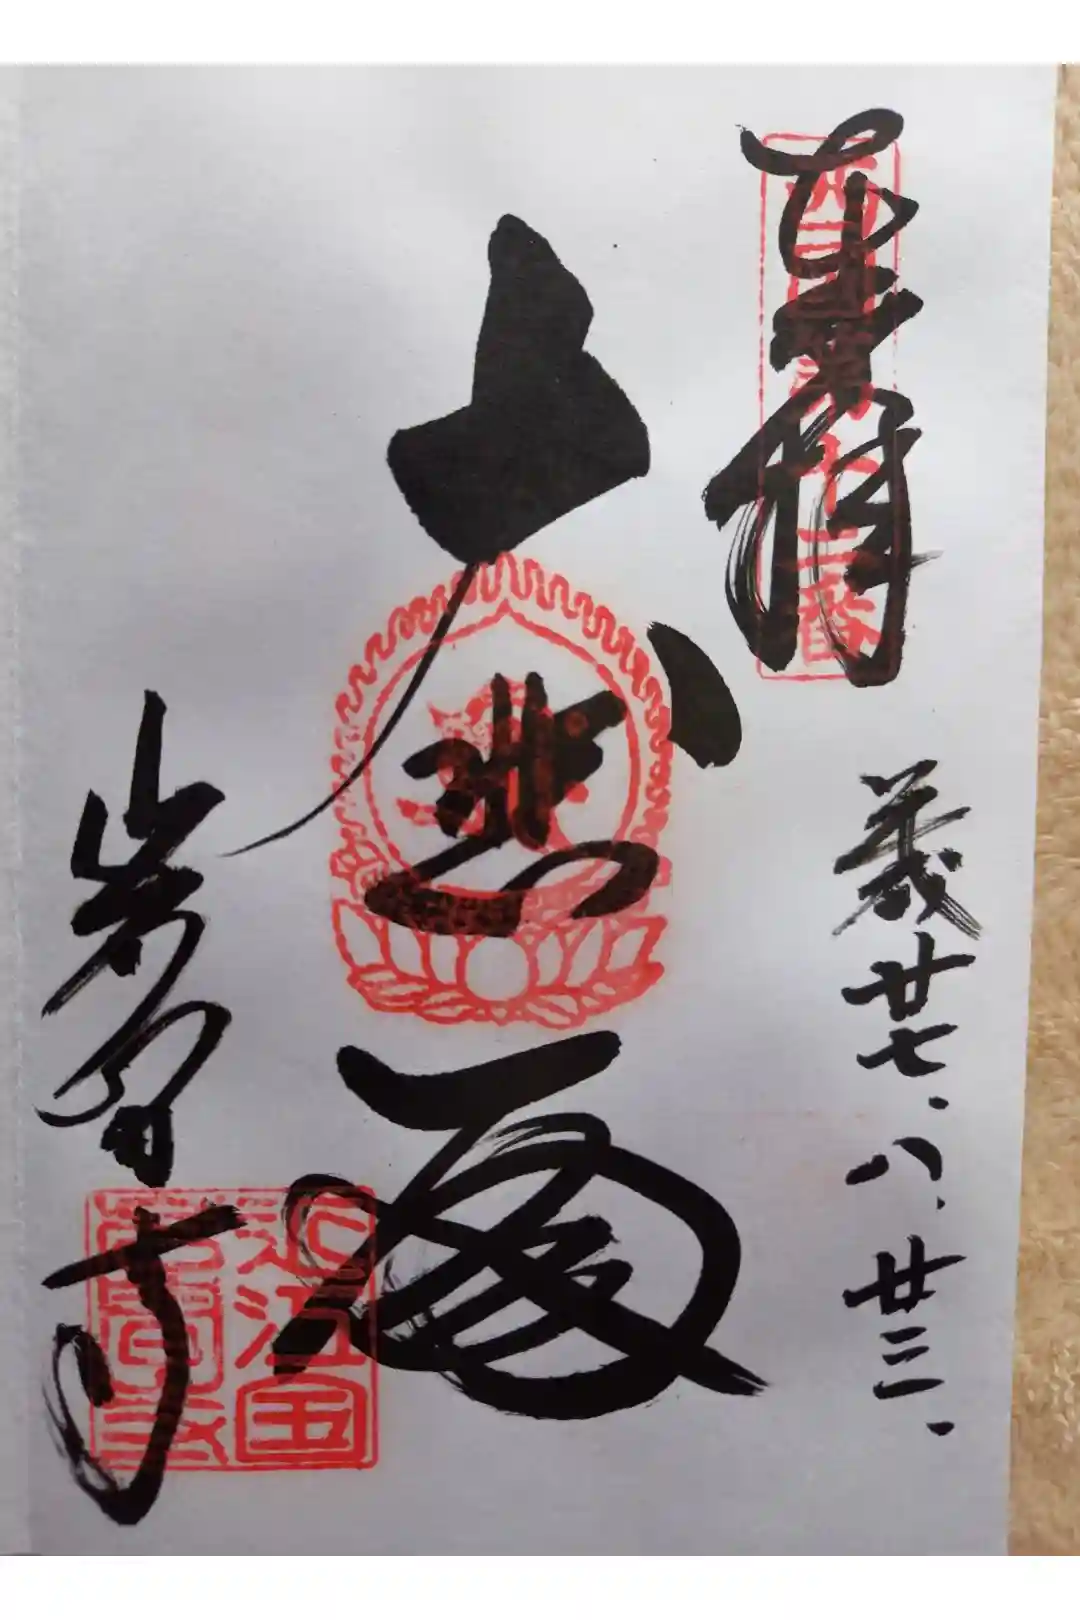 奉拝
西国第十二番
平成廿七.八.廿三.
大悲殿
岩間寺
近江国